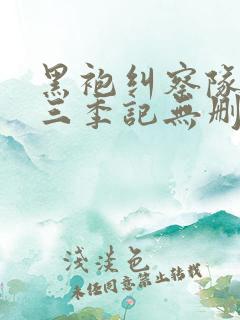 黑袍纠察队
三季記無删
淺淡色
未任同意禁止转载